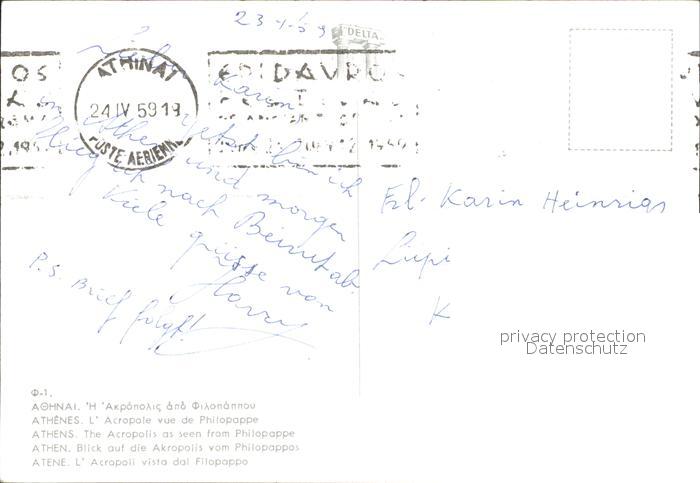 23-4-59
DELTA
Liebe Karin
In Athen jetzt bin ich
und morgen
flieg ich nach Beirut ab.
Viele grüsse von
Harry
P.S. Brief folgt!
ATHINAI
24 IV 59 19
POSTE AERIENNE
EPIDAVRO
Frl. Karin Heinrigs
K
privacy protection
Datenschutz
Φ-1.
ΑΘΗΝΑΙ. Ἡ Ἀκρόπολις ἀπὸ Φιλοπάππου
ATHÈNES. L' Acropole vue de Philopappe
ATHENS. The Acropolis as seen from Philopappe
ATHEN. Blick auf die Akropolis vom Philopappos
ATENE. L' Acropoli vista dal Filopappo